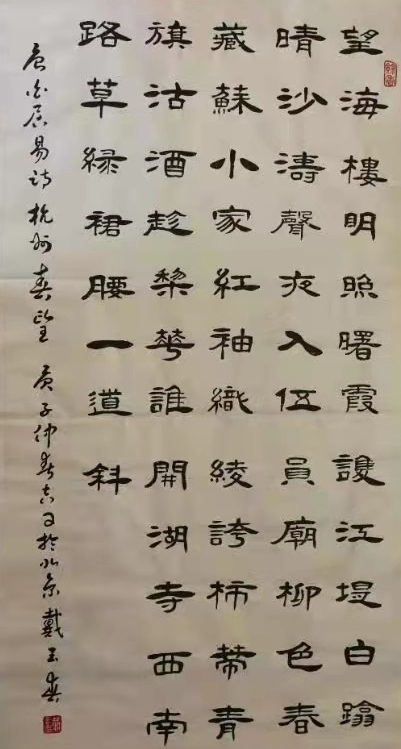 望海樓明照曙霞護江堤白蹋
晴沙濤聲夜入伍員廟柳色春
藏蘇小家紅袖織綾誇柿蒂青
旗沽酒趁棃華誰開湖寺西南
路草緑裙腰一道斜
唐白居易詩杭州春望 庚子仲春吉日於北京戴玉春